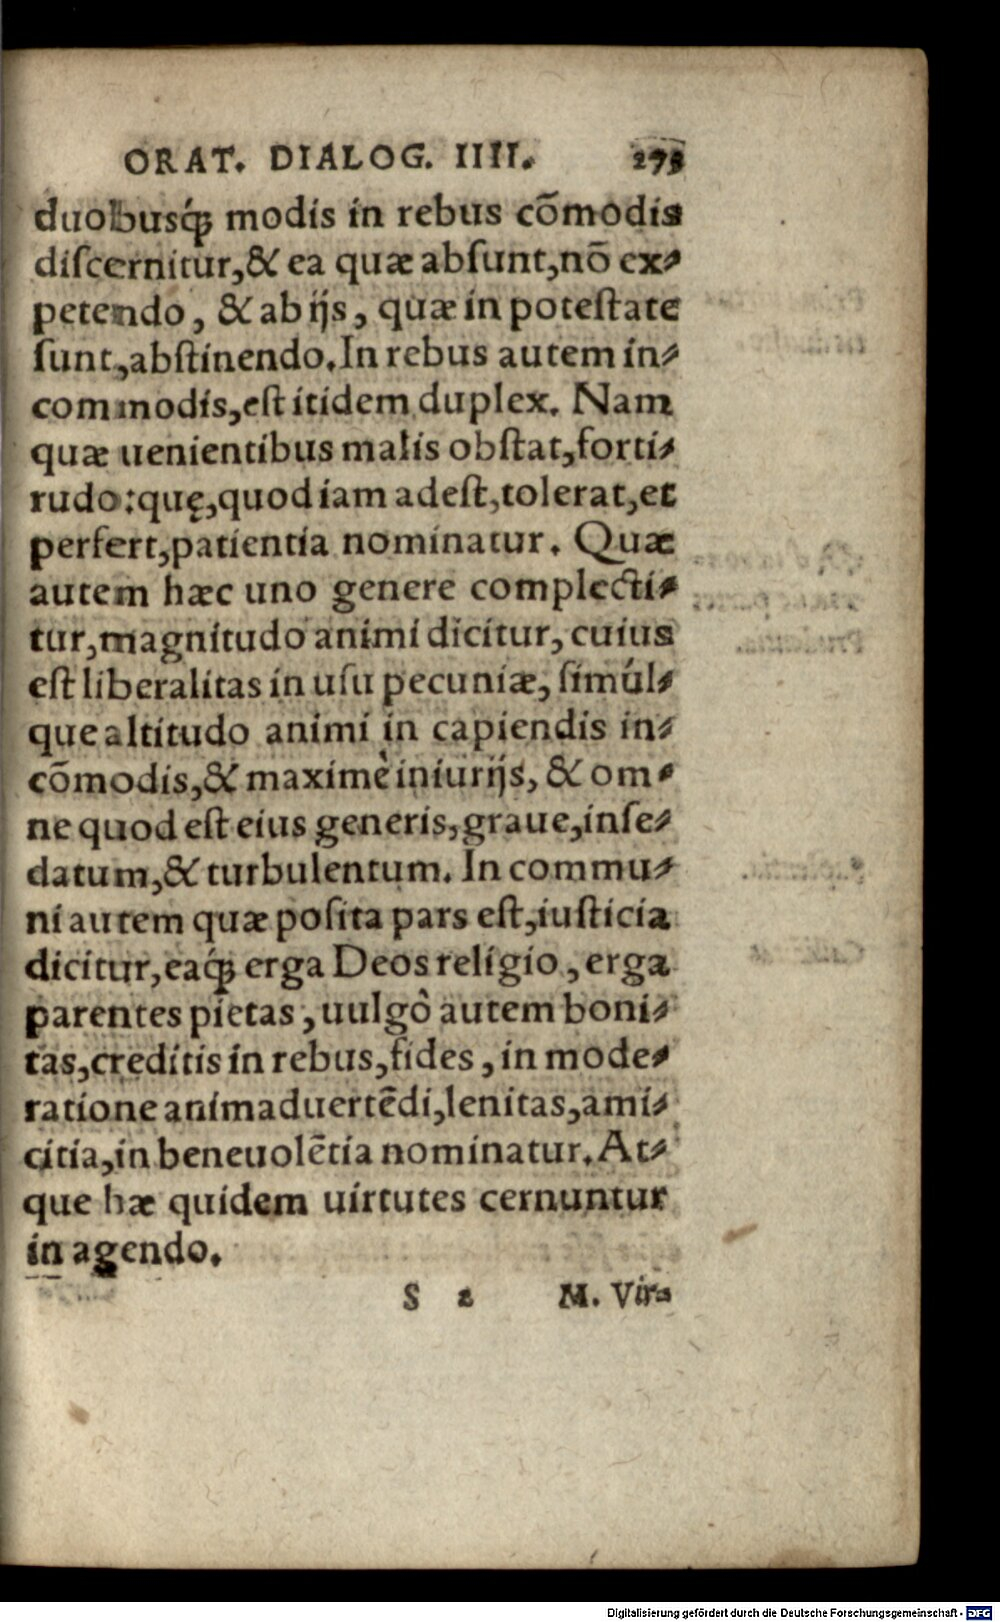 ORAT. DIALOG. IIII. 275
duobusq́; modis in rebus cõmodis
discernitur,& ea quæ absunt,nõ ex-
petendo, & ab ijs, quæ in potestate
sunt,abstinendo.In rebus autem in-
commodis,est itidem duplex. Nam
quæ uenientibus malis obstat,forti-
tudo:quę,quod iam adest,tolerat,et
perfert,patientia nominatur. Quæ
autem hæc uno genere complecti-
tur,magnitudo animi dicitur, cuius
est liberalitas in usu pecuniæ, simúl-
que altitudo animi in capiendis in-
cõmodis,& maximè iniurijs, & om-
ne quod est eius generis,graue,inse-
datum,& turbulentum. In commu-
ni autem quæ posita pars est,iusticia
dicitur,eaq́; erga Deos religio, erga
parentes pietas, uulgò autem boni-
tas,creditis in rebus,fides, in mode-
ratione animaduertẽdi,lenitas,ami-
citia,in beneuolẽtia nominatur.At-
que hæ quidem uirtutes cernuntur
in agendo.
S 2 M. Vir-
Digitalisierung gefördert durch die Deutsche Forschungsgemeinschaft - DFG